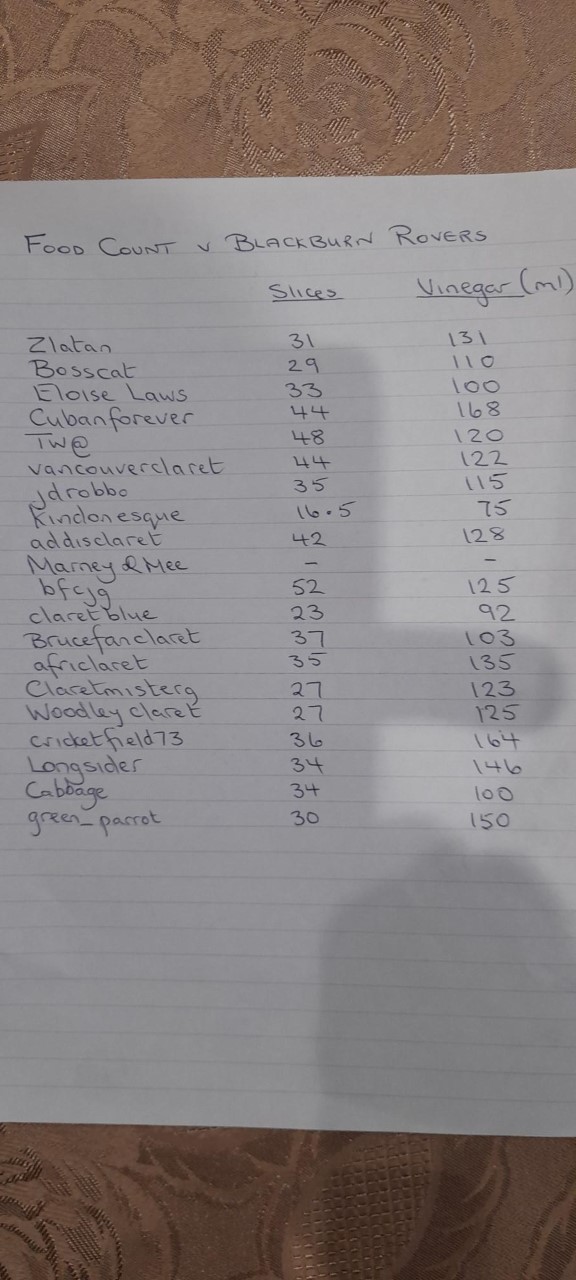 FOOD COUNT v BLACKBURN ROVERS
Slices Vinegar (ml)
Zlatan 31 131
Bosscat 29 110
Eloise Laws 33 100
Cubanforever 44 168
TW@ 48 120
vancouverclaret 44 122
jdrobbo 35 115
Rindonesque 16.5 75
addisclaret 42 128
Marney & Mee - -
bfcjg 52 125
claret blue 23 92
Brucefanclaret 37 103
africlaret 35 135
Claretmisterg 27 123
Woodley claret 27 125
cricketfield73 36 164
Longsider 34 146
Cabbage 34 100
green_parrot 30 150